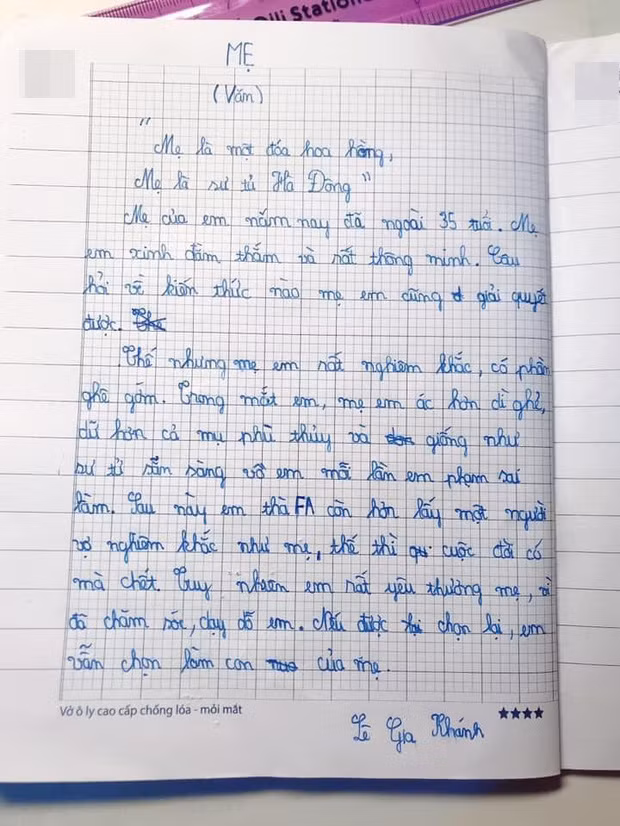 Olli Station
MẸ
(Văn)
"
Mẹ là một đóa hoa hồng,
Mẹ là sư tử Hà Đông"
Mẹ của em năm nay đã ngoài 35 tuổi. Mẹ
em xinh đằm thắm và rất thông minh. Câu
hỏi về kiến thức nào mẹ em cũng giải quyết
được.
Thế nhưng mẹ em rất nghiêm khắc, có phần
ghê gớm. Trong mắt em, mẹ em ác hơn dì ghẻ,
dữ hơn cả mụ phù thủy và giống như
sư tử sẵn sàng vồ em mỗi lần em phạm sai
lầm. Sau này em thà FA còn hơn lấy một người
vợ nghiêm khắc như mẹ, thế thì cuộc đời có
mà chết. Tuy nhiên em rất yêu thương mẹ, vì
đã chăm sóc, dạy dỗ em. Nếu được chọn lại, em
vẫn chọn làm con của mẹ.
Vở ô ly cao cấp chống lóa - mỏi mắt
★★★★
Lê Gia Khánh